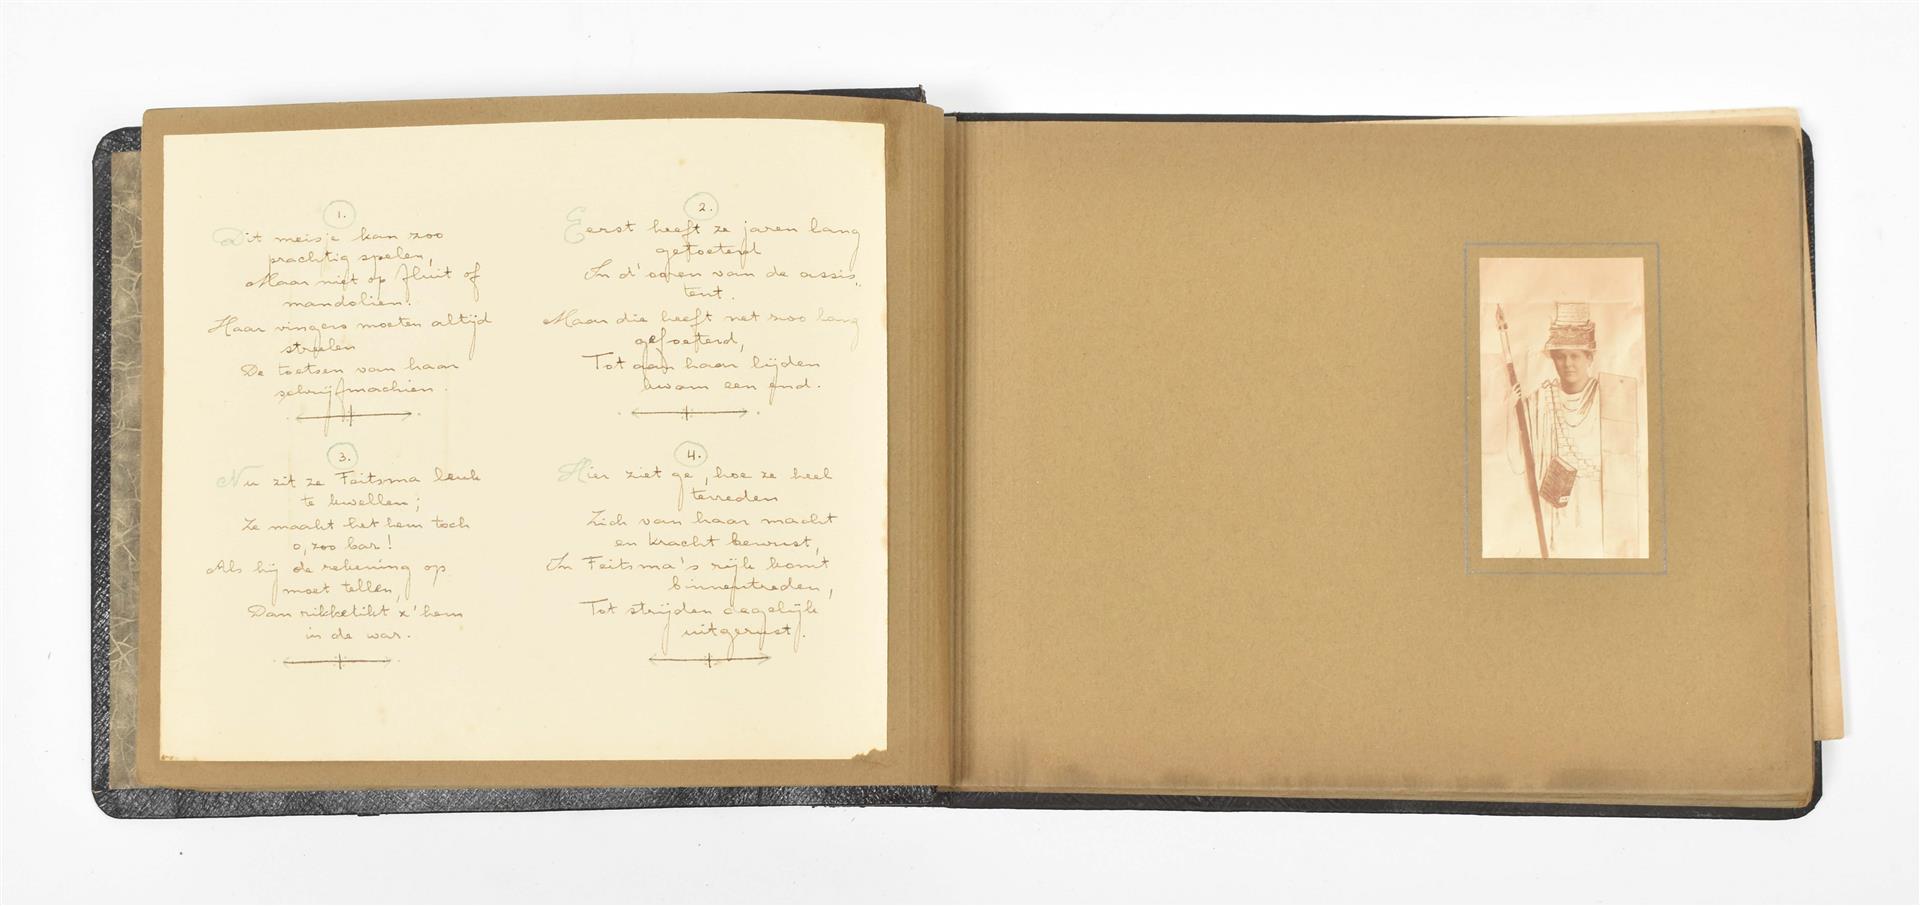 1.
Dit meisje kan zoo
prachtig spelen,
Maar niet op fluit of
mandolien.
Haar vingers moeten altijd
streelen
De toetsen van haar
schrijfmachien.
2.
Eerst heeft ze jaren lang
getoeterd
In d'ooren van de assis,,
tent.
Maar die heeft net zoo lang
gefoeterd,
Tot aan haar lijden
kwam een end.
3.
Nu zit ze Feitsma leuk
te kwellen;
Ze maakt het hem toch
o, zoo bar!
Als hij de rekening op
moet tellen,
Dan rikketikt z' hem
in de war.
4.
Hier ziet ge, hoe ze heel
tevreden
Zich van haar macht
en kracht bewust,
In Feitsma's rijk komt
binnentreden,
Tot strijden degelijk
uitgerust.